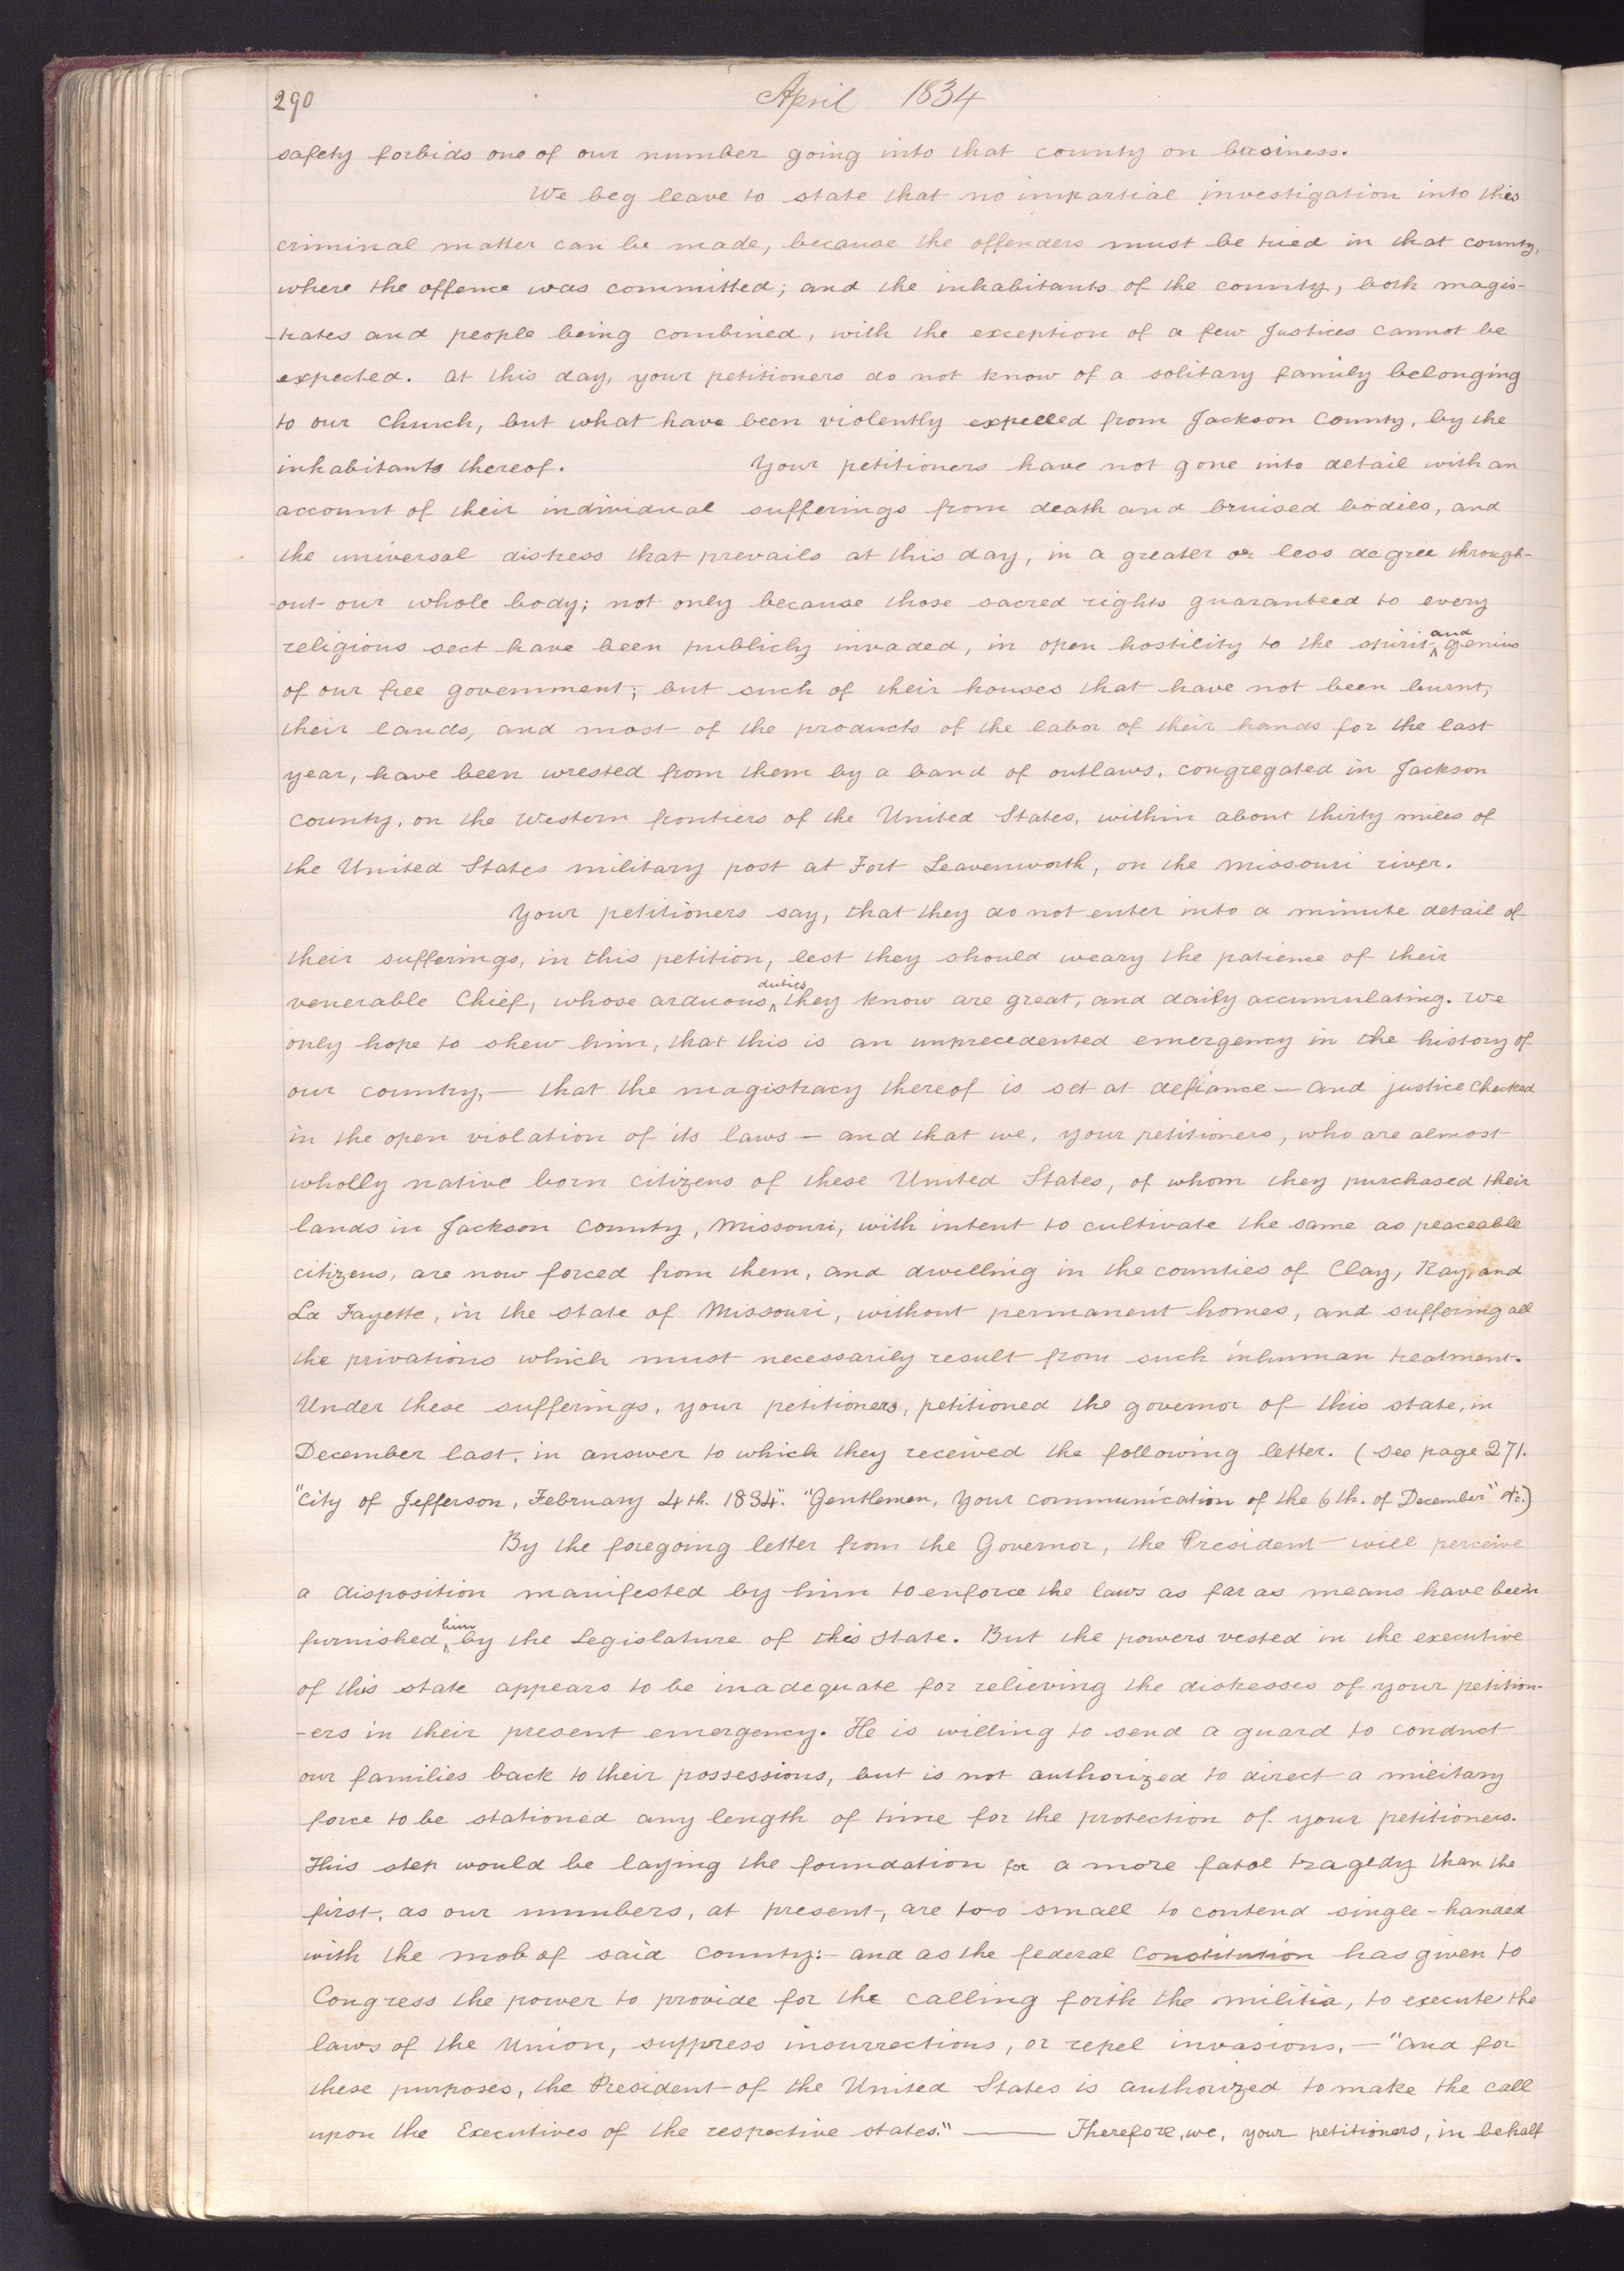 290
April 1834
safety forbids one of our number going into that county on business.
We beg leave to state that no impartial investigation into this
criminal matter can be made, because the offenders must be tried in that county,
where the offence was committed; and the inhabitants of the county, both magis-
-trates and people being combined, with the exception of a few Justices cannot be
expected. At this day, your petitioners do not know of a solitary family belonging
to our Church, but what have been violently expelled from Jackson County, by the
inhabitants thereof. Your petitioners have not gone into detail with an
account of their individual sufferings from death and bruised bodies, and
the universal distress that prevails at this day, in a greater or less degree through-
-out our whole body; not only because those sacred rights guaranteed to every
religious sect have been publicly invaded, in open hostility to the spirit and genius
of our free government; but such of their houses that have not been burnt,
their lands, and most of the products of the labor of their hands for the last
year, have been wrested from them by a band of outlaws, congregated in Jackson
County, on the Western frontiers of the United States, within about thirty miles of
the United States military post at Fort Leavenworth, on the Missouri river.
Your petitioners say, that they do not enter into a minute detail of
their sufferings, in this petition, lest they should weary the patience of their
venerable Chief, whose arduous duties they know are great, and daily accumulating. We
only hope to shew him, that this is an unprecedented emergency in the history of
our country,— that the magistracy thereof is set at defiance — and justice checked
in the open violation of its laws — and that we, your petitioners, who are almost
wholly native born citizens of these United States, of whom they purchased their
lands in Jackson County, Missouri, with intent to cultivate the same as peaceable
citizens, are now forced from them, and dwelling in the counties of Clay, Ray, and
La Fayette, in the state of Missouri, without permanent homes, and suffering all
the privations which must necessarily result from such inhuman treatment.
Under these sufferings, your petitioners, petitioned the governor of this state, in
December last, in answer to which they received the following letter. (See page 271.
"City of Jefferson, February 4th. 1834". "Gentlemen, Your communication of the 6th. of December" &c.)
By the foregoing letter from the Governor, the President will perceive
a disposition manifested by him to enforce the laws as far as means have been
furnished him by the Legislature of this State. But the powers vested in the executive
of this state appears to be inadequate for relieving the distresses of your petition-
-ers in their present emergency. He is willing to send a guard to conduct
our families back to their possessions, but is not authorized to direct a military
force to be stationed any length of time for the protection of your petitioners.
This step would be laying the foundation for a more fatal tragedy than the
first, as our numbers, at present, are too small to contend single-handed
with the mob of said County:- and as the federal Constitution has given to
Congress the power to provide for the calling forth the militia, to execute the
laws of the Union, suppress insurrections, or repel invasions,— "and for
these purposes, the President of the United States is authorized to make the call
upon the Executives of the respective states." —— Therefore, we, your petitioners, in behalf